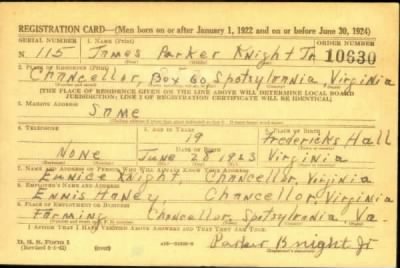 REGISTRATION CARD—(Men born on or after January 1, 1922 and on or before June 30, 1924)
SERIAL NUMBER 1. NAME (Print) ORDER NUMBER
N 115 James Parker Knight Jr 10630
2. PLACE OF RESIDENCE (Print)
Chancellor, Box 60 Spotsylvania, Virginia
[THE PLACE OF RESIDENCE GIVEN ON THE LINE ABOVE WILL DETERMINE LOCAL BOARD
JURISDICTION; LINE 2 OF REGISTRATION CERTIFICATE WILL BE IDENTICAL]
3. MAILING ADDRESS
Same
4. TELEPHONE 5. AGE IN YEARS 6. PLACE OF BIRTH
19 Fredericks Hall
DATE OF BIRTH
None June 28 1923 Virginia
7. NAME AND ADDRESS OF PERSON WHO WILL ALWAYS KNOW YOUR ADDRESS
Eunice Knight, Chancellor, Virginia
8. EMPLOYER'S NAME AND ADDRESS
Ennis Haney, Chancellor, Virginia
9. PLACE OF EMPLOYMENT OR BUSINESS
Farming Chancellor, Spotsylvania, Va.
I AFFIRM THAT I HAVE VERIFIED ABOVE ANSWERS AND THAT THEY ARE TRUE.
D. S. S. Form 1
Parker Knight Jr